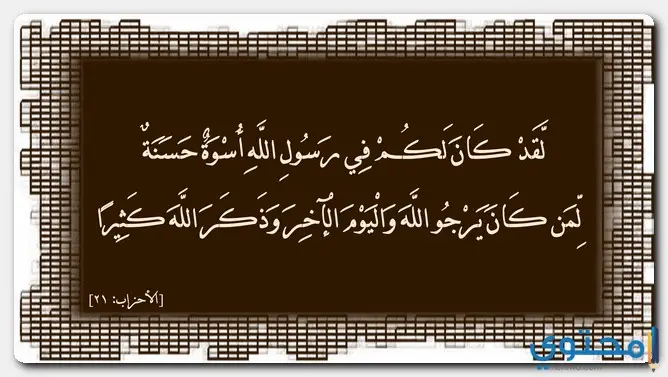 لَّقَدْ كَانَ لَكُمْ فِي رَسُولِ اللَّهِ أُسْوَةٌ حَسَنَةٌ
لِّمَن كَانَ يَرْجُو اللَّهَ وَالْيَوْمَ الْآخِرَ وَذَكَرَ اللَّهَ كَثِيرًا
[الأحزاب: ٢١]
محتوى